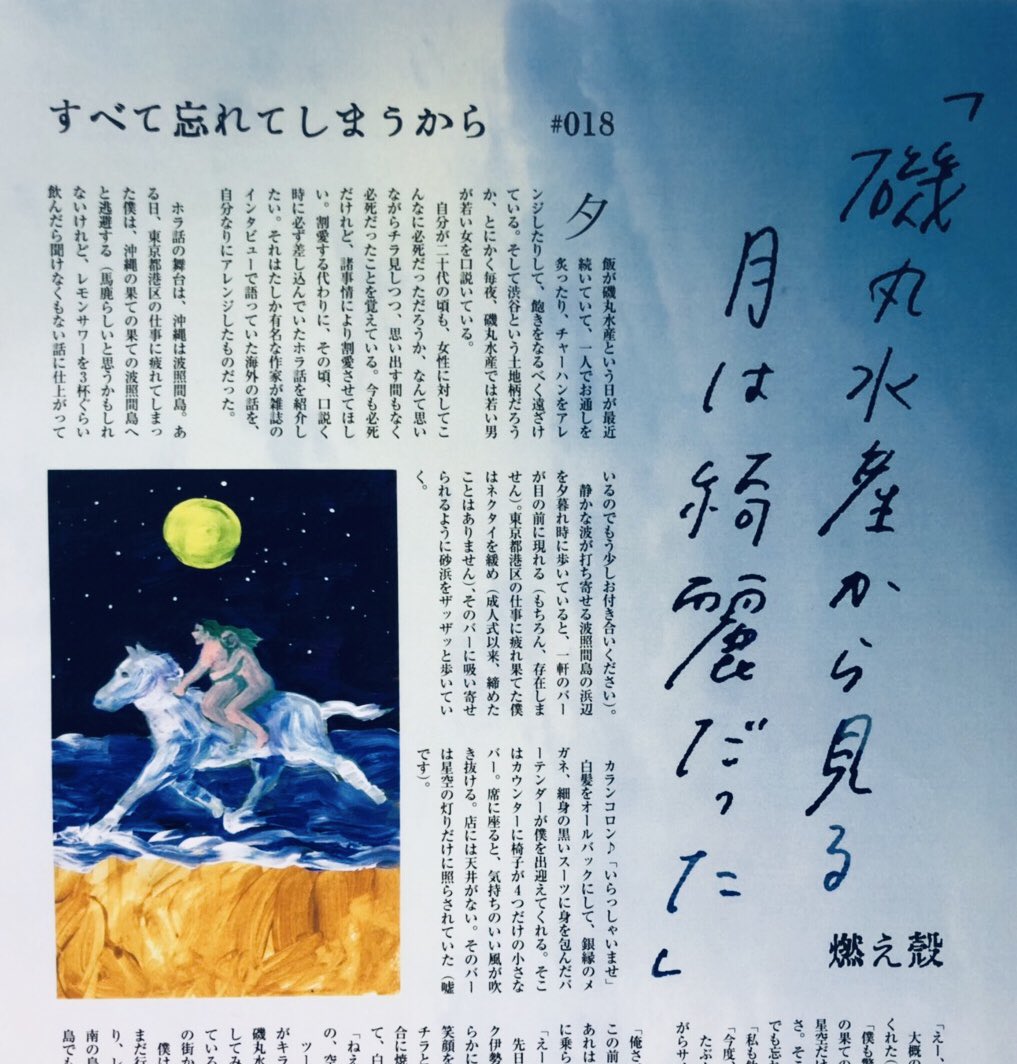 「磯丸水産から見る
月は綺麗だった」
燃え殻
すべて忘れてしまうから
#018
夕飯が磯丸水産という日が最近
続いていて、一人でお通しを
炙ったり、チャーハンをアレ
ンジしたりして、飽きをなるべく遠ざけ
ている。そして渋谷という土地柄だろう
か、とにかく毎夜、磯丸水産では若い男
が若い女を口説いている。
自分が二十代の頃も、女性に対してこ
んなに必死だっただろうか、なんて思い
ながらチラ見しつつ、思い出す間もなく
必死だったことを覚えている。今も必死
だけれど、諸事情により割愛させてほし
い。割愛する代わりに、その頃、口説く
時に必ず差し込んでいたホラ話を紹介し
たい。それはたしか有名な作家が雑誌の
インタビューで語っていた海外の話を、
自分なりにアレンジしたものだった。
ホラ話の舞台は、沖縄は波照間島。あ
る日、東京都港区の仕事に疲れてしまっ
た僕は、沖縄の果ての果ての波照間島へ
と逃避する（馬鹿らしいと思うかもしれ
ないけれど、レモンサワーを3杯ぐらい
飲んだら聞けなくもない話に仕上がって
いるのでもう少しお付き合いください）。
静かな波が打ち寄せる波照間島の浜辺
を夕暮れ時に歩いていると、一軒のバー
が目の前に現れる（もちろん、存在しま
せん）。東京都港区の仕事に疲れ果てた僕
はネクタイを緩め（成人式以来、締めた
ことはありません）、そのバーに吸い寄せ
られるように砂浜をザッザッと歩いてい
く。
カランコロン♪「いらっしゃいませ」
白髪をオールバックにして、銀縁のメ
ガネ、細身の黒いスーツに身を包んだバ
ーテンダーが僕を出迎えてくれる。そこ
はカウンターに椅子が4つだけの小さな
バー。席に座ると、気持ちのいい風が吹
き抜ける。店には天井がない。そのバー
は星空の灯りだけに照らされていた（嘘
です）。